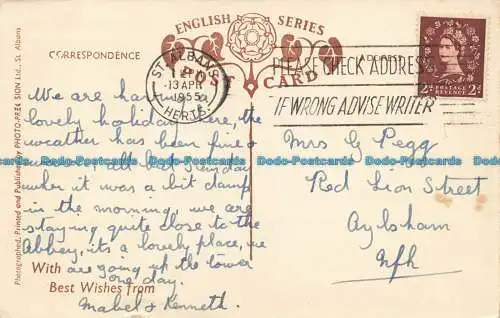 ENGLISH SERIES
CORRESPONDENCE
POST CARD
ST. ALBANS
13 APR
1955
HERTS.
PLEASE CHECK ADDRESS
IF WRONG ADVISE WRITER
POSTAGE
REVENUE
2D 2D
Photographed, Printed and Published by PHOTO-PRECISION Ltd., St. Albans
We are having a
lovely holiday here, the
weather has been fine &
all but
when it was a bit damp
in the morning, we are
staying quite close to the
Abbey, its a lovely place, we
are going up the tower
one day.
With
Best Wishes from
Mabel & Kenneth.
Mrs G Pegg
Red Lion Street
Aylsham
Nfk
Todo-Postcards Todo-Postcards Todo-Postcards Todo-Postcards